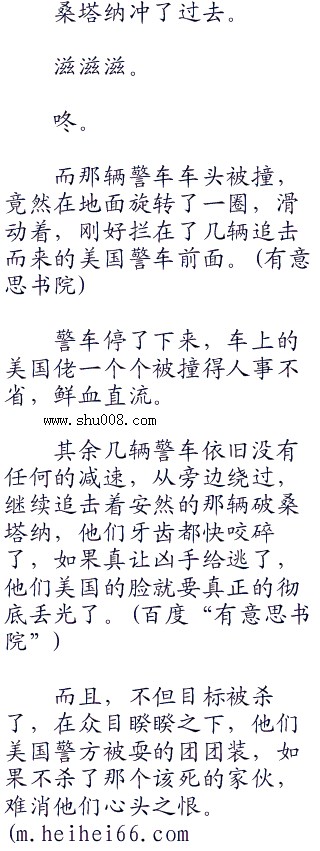 桑塔纳冲了过去。
滋滋滋。
咚。
而那辆警车车头被撞，
竟然在地面旋转了一圈，滑
动着，刚好拦在了几辆追击
而来的美国警车前面。(有意
思书院)
警车停了下来，车上的
美国佬一个个被撞得人事不
省，鲜血直流。
www.shu008.com
其余几辆警车依旧没有
任何的减速，从旁边绕过，
继续追击着安然的那辆破桑
塔纳，他们牙齿都快咬碎
了，如果真让凶手给逃了，
他们美国的脸就要真正的彻
底丢光了。(百度“有意思书
院”)
而且，不但目标被杀
了，在众目睽睽之下，他们
美国警方被耍的团团装，如
果不杀了那个该死的家伙，
难消他们心头之恨。
(m.heihei66.com